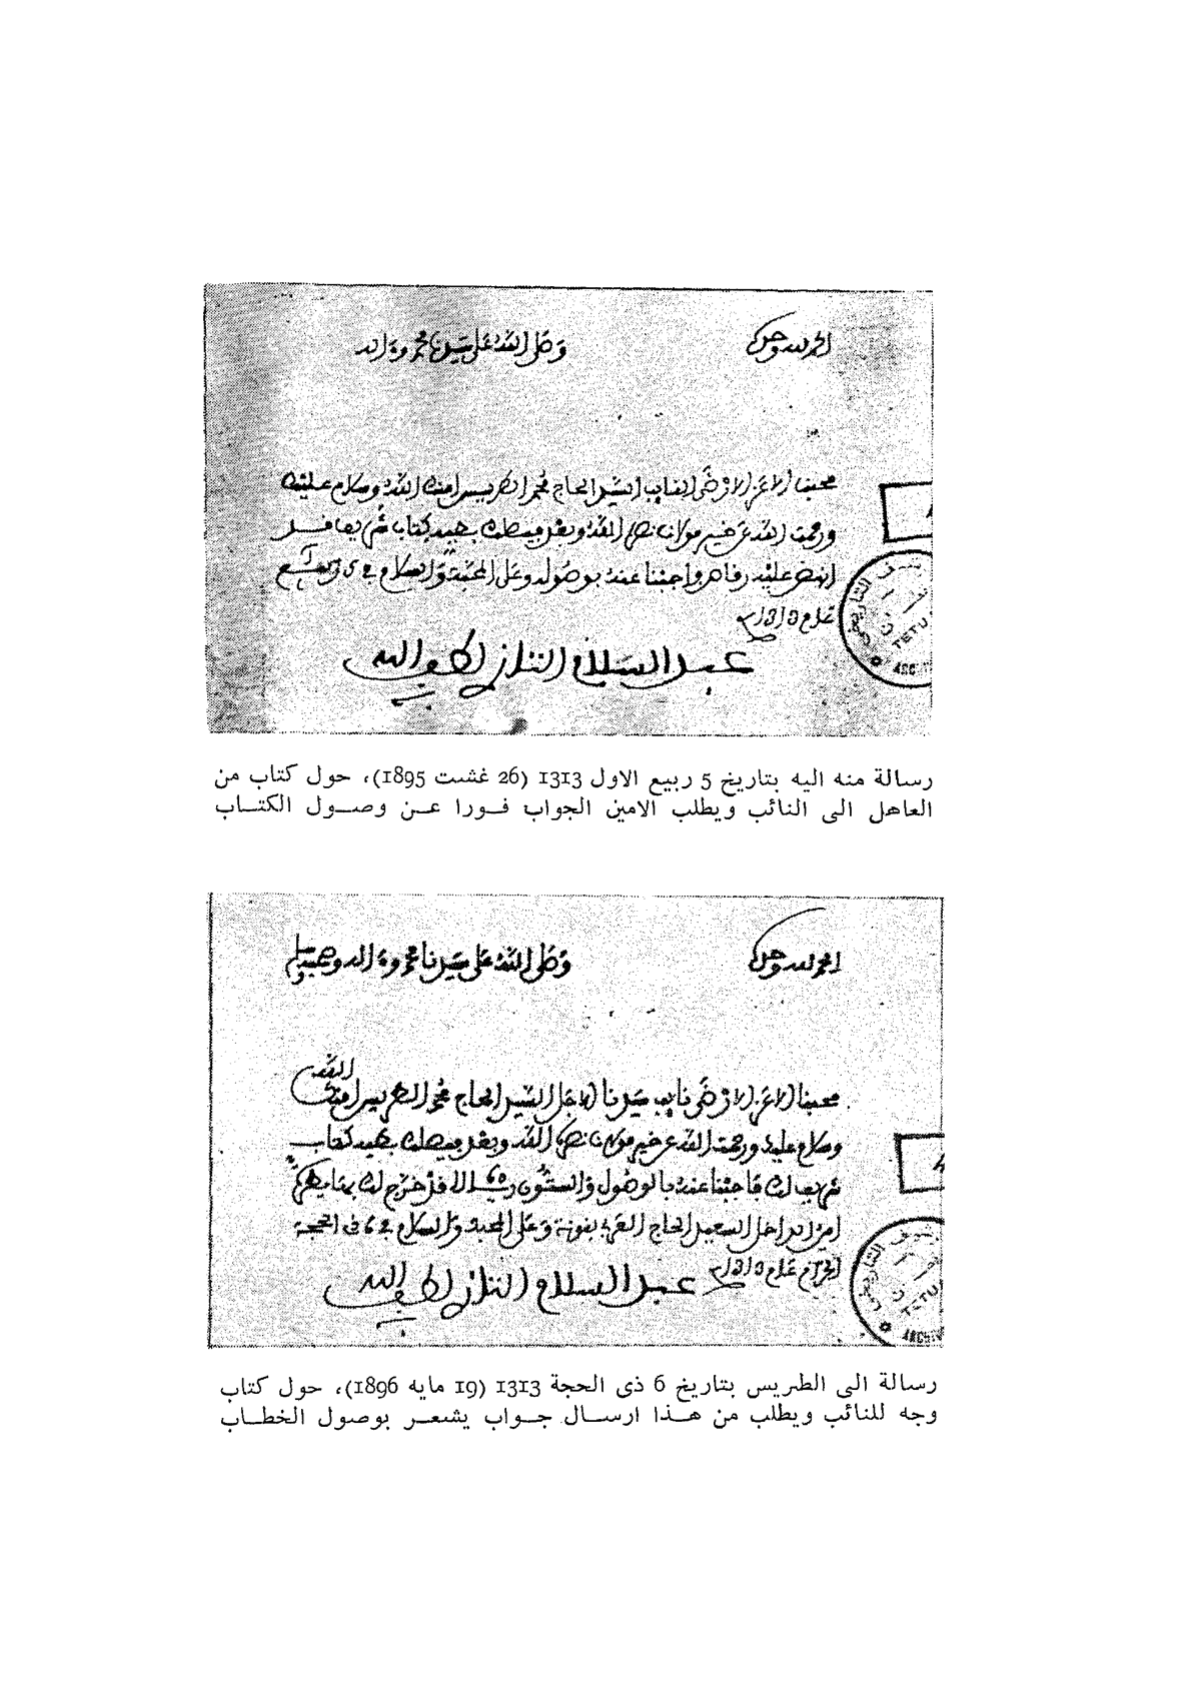 الحمد لله وحده
وصلى الله على سيدنا محمد وءاله
محبنا الاعز الارضى النايب السيد الحاج محمد الطريس امنك الله وسلام عليك
ورحمت الله عن خير مولانا نصره الله وبعد فيصلك طيه كتاب شريف
عليه واجبنا عنه بوصوله وعلى المحبة والسلام في 5 ربيع I
عام 1313
عبد السلام التازي لطف الله به
رسالة منه اليه بتاريخ 5 ربيع الاول 1313 (26 غشت 1895)، حول كتاب من
العاهل الى النائب ويطلب الامين الجواب فـورا عـن وصـول الكتـاب
الحمد لله وحده
وصلى الله على سيدنا محمد وءاله وصحبه
محبنا الاعز الارضى نايب سيدنا الاجل السيد الحاج محمد الطريس امنك الله
وسلام عليك ورحمت الله عن خير مولانا نصره الله وبعد فيصلك طيه كتاب
شريف لك فاجبنا عنه بالوصول والستون ريالا
وعلى المحبة والسلام في 6 ذى الحجة
الحرام عام 1313
عبد السلام التازي لطف الله به
رسالة الى الطريس بتاريخ 6 ذى الحجة 1313 (19 مايه 1896)، حول كتاب
وجه للنائب ويطلب من هـذا ارسـال جـواب يشعـر بوصول الخطـاب